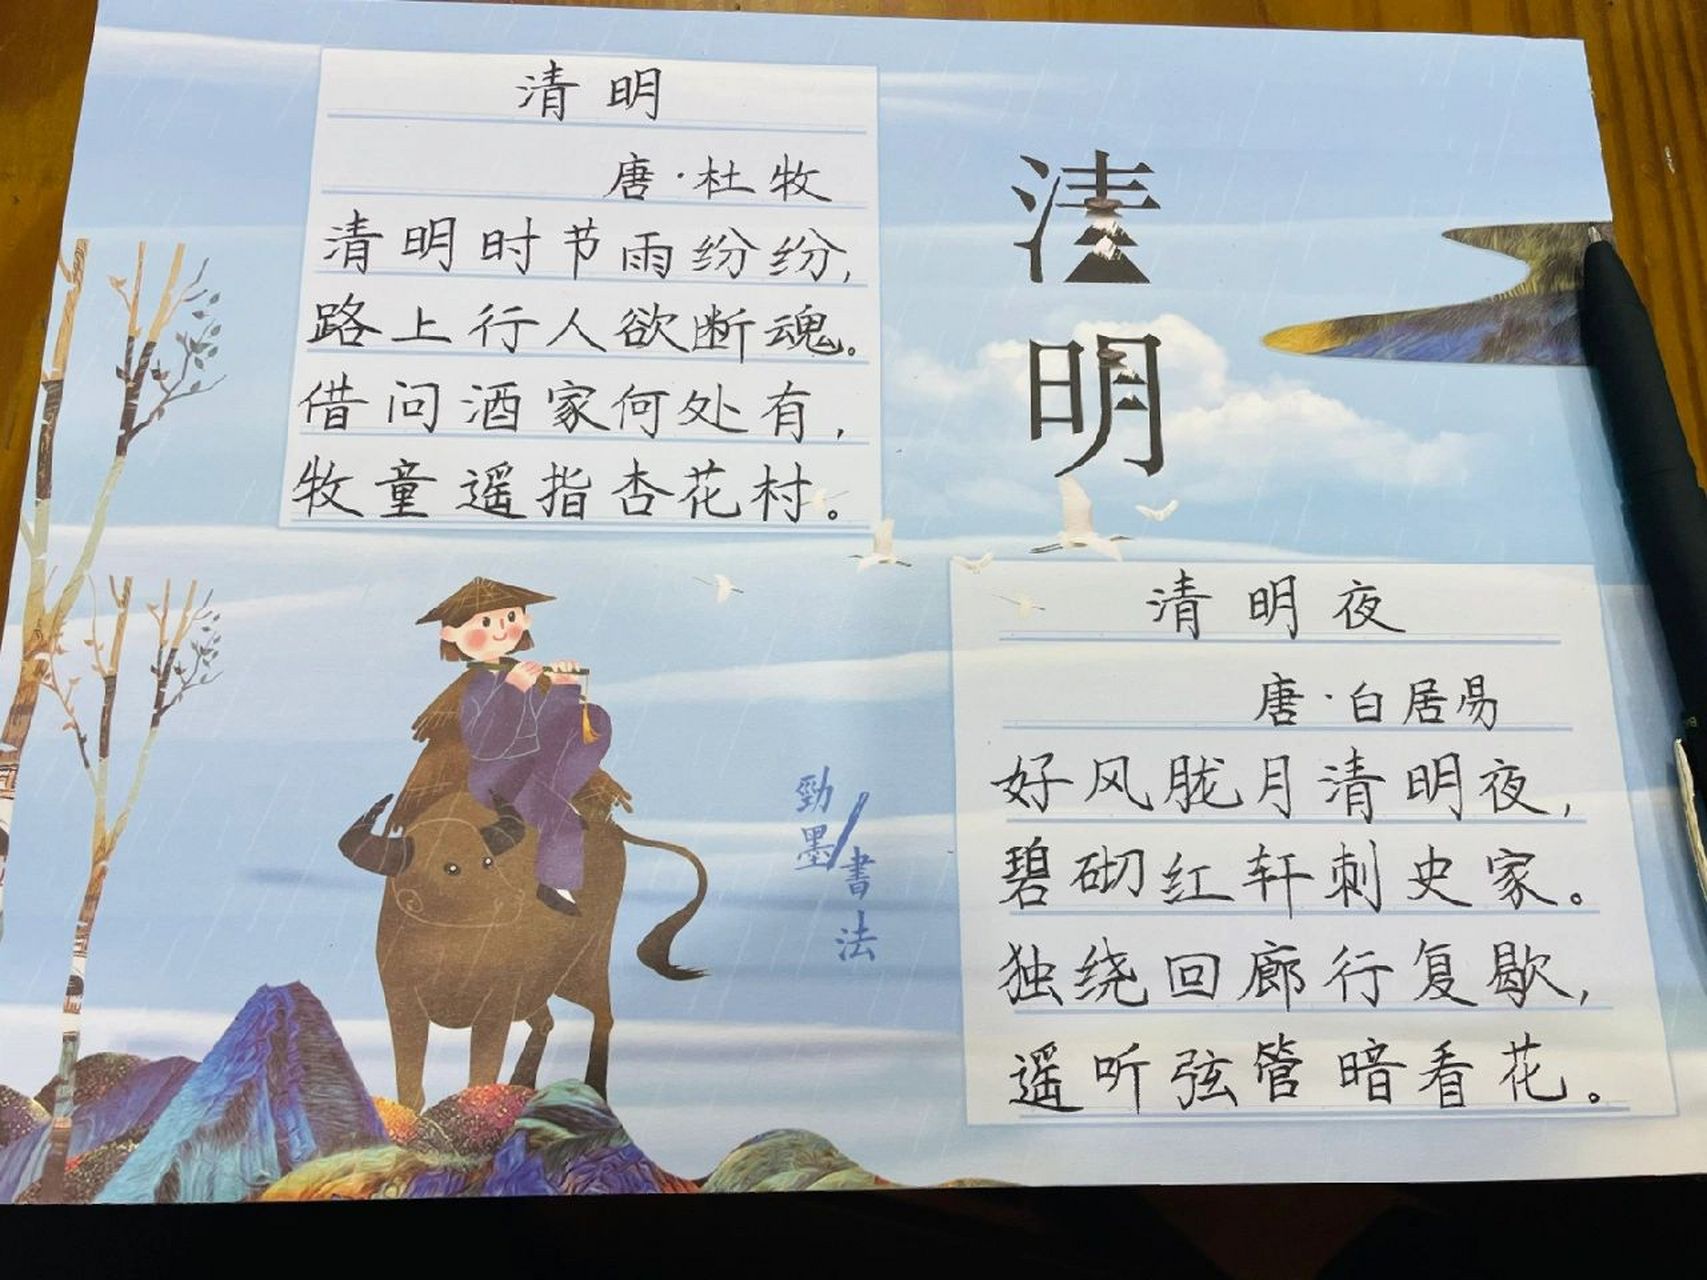 清明
唐·杜牧
清明时节雨纷纷,
路上行人欲断魂。
借问酒家何处有,
牧童遥指杏花村。
清
明
勁墨
書法
清明夜
唐·白居易
好风胧月清明夜,
碧砌红轩刺史家。
独绕回廊行复歇,
遥听弦管暗看花。